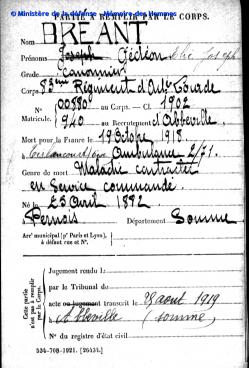 © Ministère de la Défense - Mémoire des Hommes
PARTIE À REMPLIR PAR LE CORPS.
Nom DRÉANT
Prénoms Joseph Gédéon
Grade Canonnier
Corps 83ème Régiment d'Artie Lourde
N° 00880 au Corps. — Cl. 1902
Matricule. 940 au Recrutement d'Abbeville
Mort pour la France le 19 Octobre 1918
Ambulance 2/71.
Genre de mort Maladie contractée
en Service commandé.
Né le 25 Août 1882
Pernois Département Somme
Arrt municipal (pr Paris et Lyon),
à défaut rue et N°.
Cette partie
n'est pas à remplir
par le Corps.
Jugement rendu le
par le Tribunal de
acte ou jugement transcrit le 28 août 1919
à Abbeville (Somme)
N° du registre d'état civil
534-708-1921. [26434.]